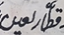 قطّار لعين